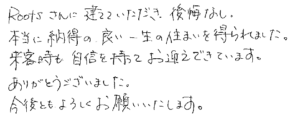 Rootsさんに建てていただき、後悔なし．
本当に納得の良い一生の住まいを得られました。
来客時も自信を持ってお迎えできています。
ありがとうございました。
今後ともよろしくお願いいたします。